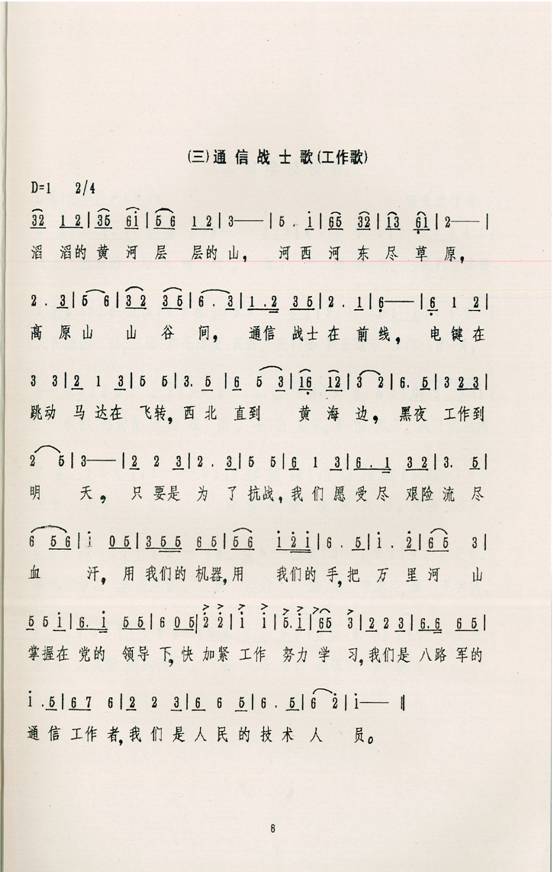 (三)通信战士歌(工作歌)
D=1 2/4
32 12|35 6i|56 12|3——|5.i|65 32|13 61|2——|
滔滔的黄河层层的山，河西河东尽草原，
2.3|5 6|32 35|6.3|1.2 35|2.1|6——|6 1 2|
高原山山谷间，通信战士在前线，电键在
3 3|2 1 3|5 5|3.5|6 5 3|16 12|3 2|6.5|3 2 3|
跳动马达在飞转，西北直到黄海边，黑夜工作到
2 5|3——|2 2 3|2.3|5.5|6 1 3|6.1 32|3.5|
明天，只要是为了抗战，我们愿受尽艰险流尽
6 56|i 05|355 65|56 i2i|6.5|i.2|65 3|
血汗，用我们的机器，用我们的手，把万里河山
55i|6.i 55|605|22 i i|5.i|65 3|2 2 3|6.6 65|
掌握在党的领导下，快加紧工作努力学习，我们是八路军的
i.5|67 6|2 2 3|6 6 5|6.5|6 2|i——‖
通信工作者，我们是人民的技术人员。
6